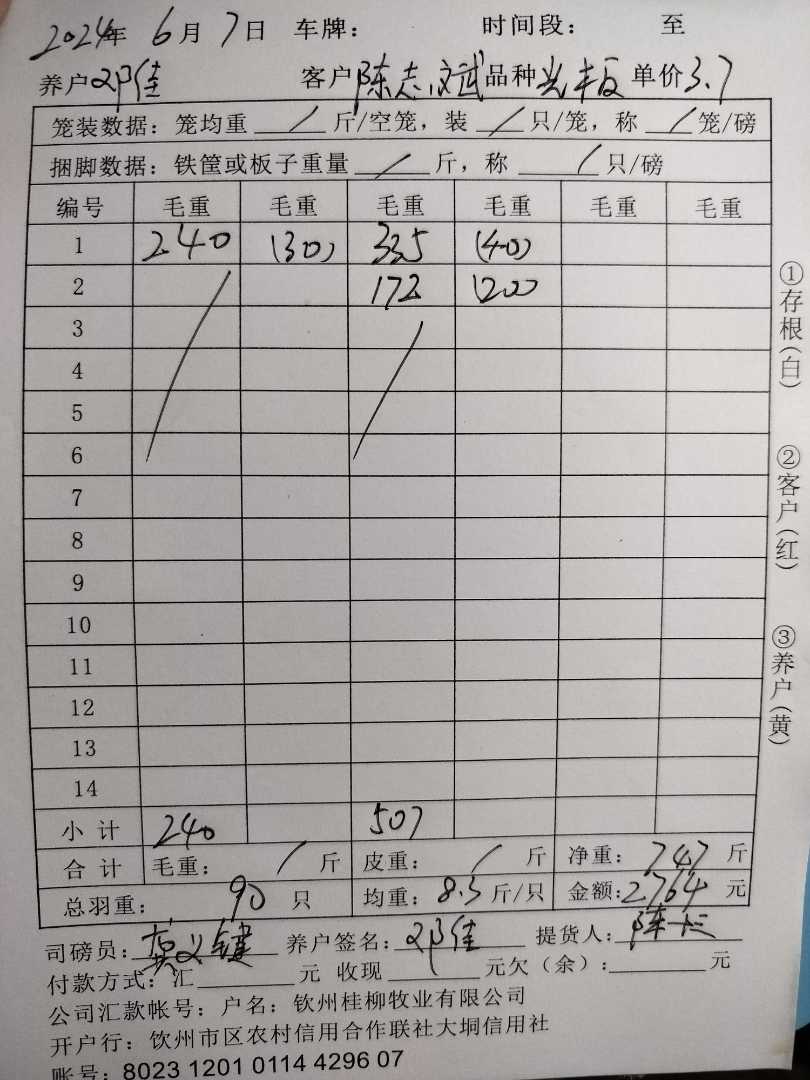 2024年 6月 7日 车牌： 时间段： 至
养户 邓佳 客户 陈志斌 品种 光板 单价 3.7
笼装数据：笼均重 / 斤/空笼，装 / 只/笼，称 / 笼/磅
捆脚数据：铁筐或板子重量 / 斤，称 / 只/磅
编号 毛重 毛重 毛重 毛重 毛重 毛重
1 240 (30) 335 (40)
2 172 (20)
3
4
5
6
7
8
9
10
11
12
13
14
小计 240 507
合计 毛重： / 斤 皮重： / 斤 净重： 747 斤
总羽重： 90 只 均重： 8.3 斤/只 金额： 2764 元
司磅员： 养户签名： 邓佳 提货人：
付款方式：汇 元 收现 元欠（余）： 元
公司汇款帐号：户名：钦州桂柳牧业有限公司
开户行：钦州市区农村信用合作联社大垌信用社
账号：8023 1201 0114 4296 07
①存根(白)
②客户(红)
③养户(黄)